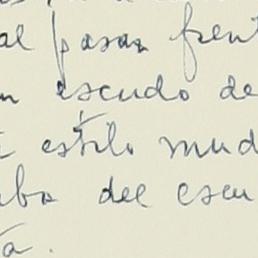 al pasar frent
n escudo de
estilo mud
del escu